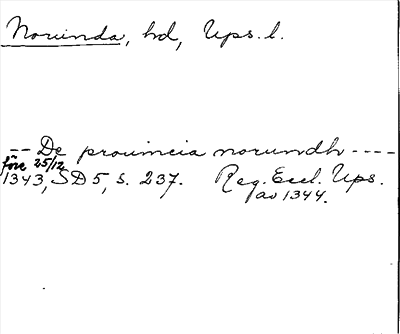 Norunda, hd, Ups. l.
-- De prouincia norundh ----
före 25/12
1343, SD 5, s. 237. Reg. Eccl. Ups.
av 1344.